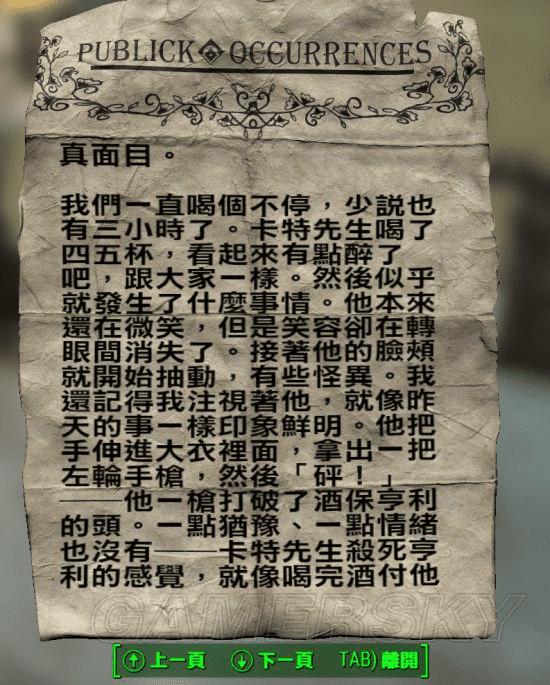 PUBLICK OCCURRENCES
真面目。
我們一直喝個不停，少說也
有三小時了。卡特先生喝了
四五杯，看起來有點醉了
吧，跟大家一樣。然後似乎
就發生了什麼事情。他本來
還在微笑，但是笑容卻在轉
眼間消失了。接著他的臉頰
就開始抽動，有些怪異。我
還記得我注視著他，就像昨
天的事一樣印象鮮明。他把
手伸進大衣裡面，拿出一把
左輪手槍，然後「砰！」
——他一槍打破了酒保亨利
的頭。一點猶豫、一點情緒
也沒有——卡特先生殺死亨
利的感覺，就像喝完酒付他
GAMERSKY
上一頁 下一頁 TAB) 離開